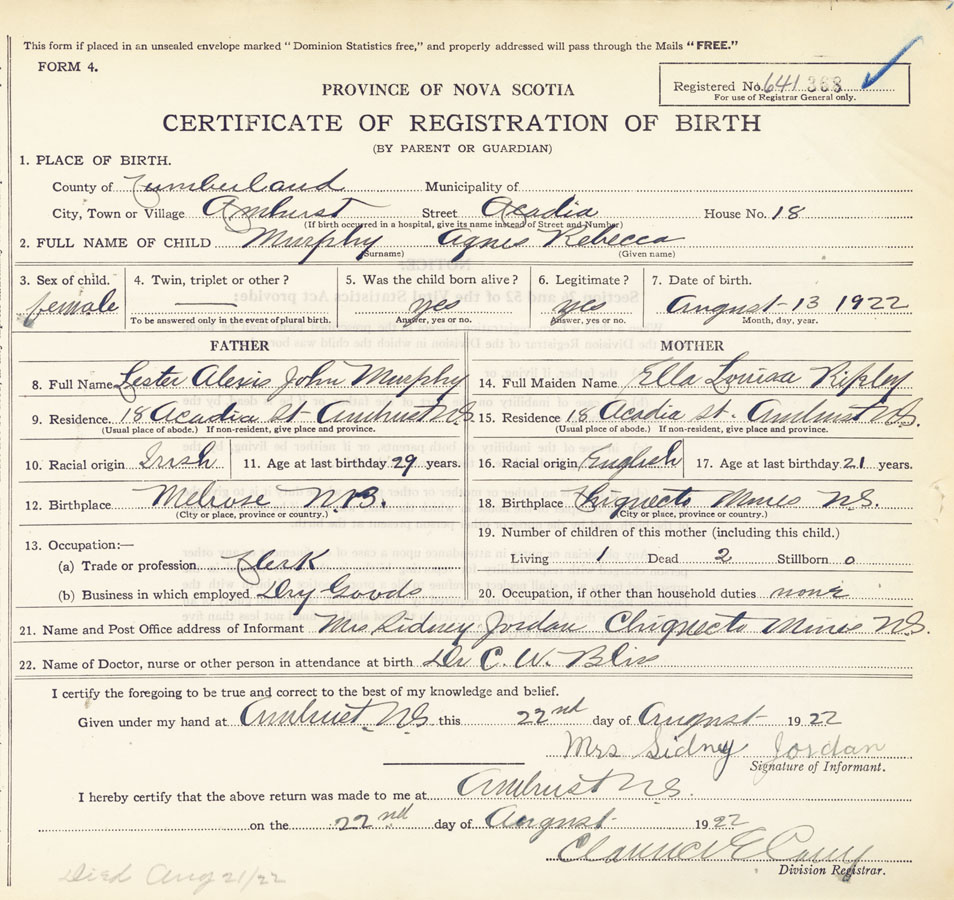 This form if placed in an unsealed envelope marked "Dominion Statistics free," and properly addressed will pass through the Mails "FREE."
FORM 4.
Registered No. 641 368
For use of Registrar General only.
PROVINCE OF NOVA SCOTIA
CERTIFICATE OF REGISTRATION OF BIRTH
(BY PARENT OR GUARDIAN)
1. PLACE OF BIRTH.
County of Cumberland Municipality of
City, Town or Village Amhurst Street Acadia House No. 18
(If birth occurred in a hospital, give its name instead of Street and Number)
2. FULL NAME OF CHILD Murphy Agnes Rebecca
(Surname) (Given name)
3. Sex of child. 4. Twin, triplet or other? 5. Was the child born alive? 6. Legitimate? 7. Date of birth.
female — yes yes August 13 1922
To be answered only in the event of plural birth. Answer, yes or no. Answer, yes or no. Month, day, year.
FATHER MOTHER
8. Full Name Lester Alexis John Murphy 14. Full Maiden Name Ella Louisa Ripley
9. Residence. 18 Acadia St Amhurst N.S. 15. Residence 18 Acadia st. Amhurst N.S.
(Usual place of abode.) If non-resident, give place and province. (Usual place of abode.) If non-resident, give place and province.
10. Racial origin Irish 11. Age at last birthday 29 years. 16. Racial origin English 17. Age at last birthday 21 years.
12. Birthplace Melrose N.B. 18. Birthplace Chiquecto Mines N.S.
(City or place, province or country.) (City or place, province or country.)
13. Occupation:— 19. Number of children of this mother (including this child.)
(a) Trade or profession Clerk Living 1 Dead 2 Stillborn 0
(b) Business in which employed Dry Goods 20. Occupation, if other than household duties none
21. Name and Post Office address of Informant Mrs Sidney Jordan Chiquecto Mines N.S.
22. Name of Doctor, nurse or other person in attendance at birth Dr C. W. Bliss
I certify the foregoing to be true and correct to the best of my knowledge and belief.
Given under my hand at Amhurst N.S. this 22nd day of August 1922
Mrs Sidney Jordan
Signature of Informant.
I hereby certify that the above return was made to me at Amhurst N.S.
on the 22nd day of August 1922
Clarence E
Division Registrar.
Died Aug 21/22